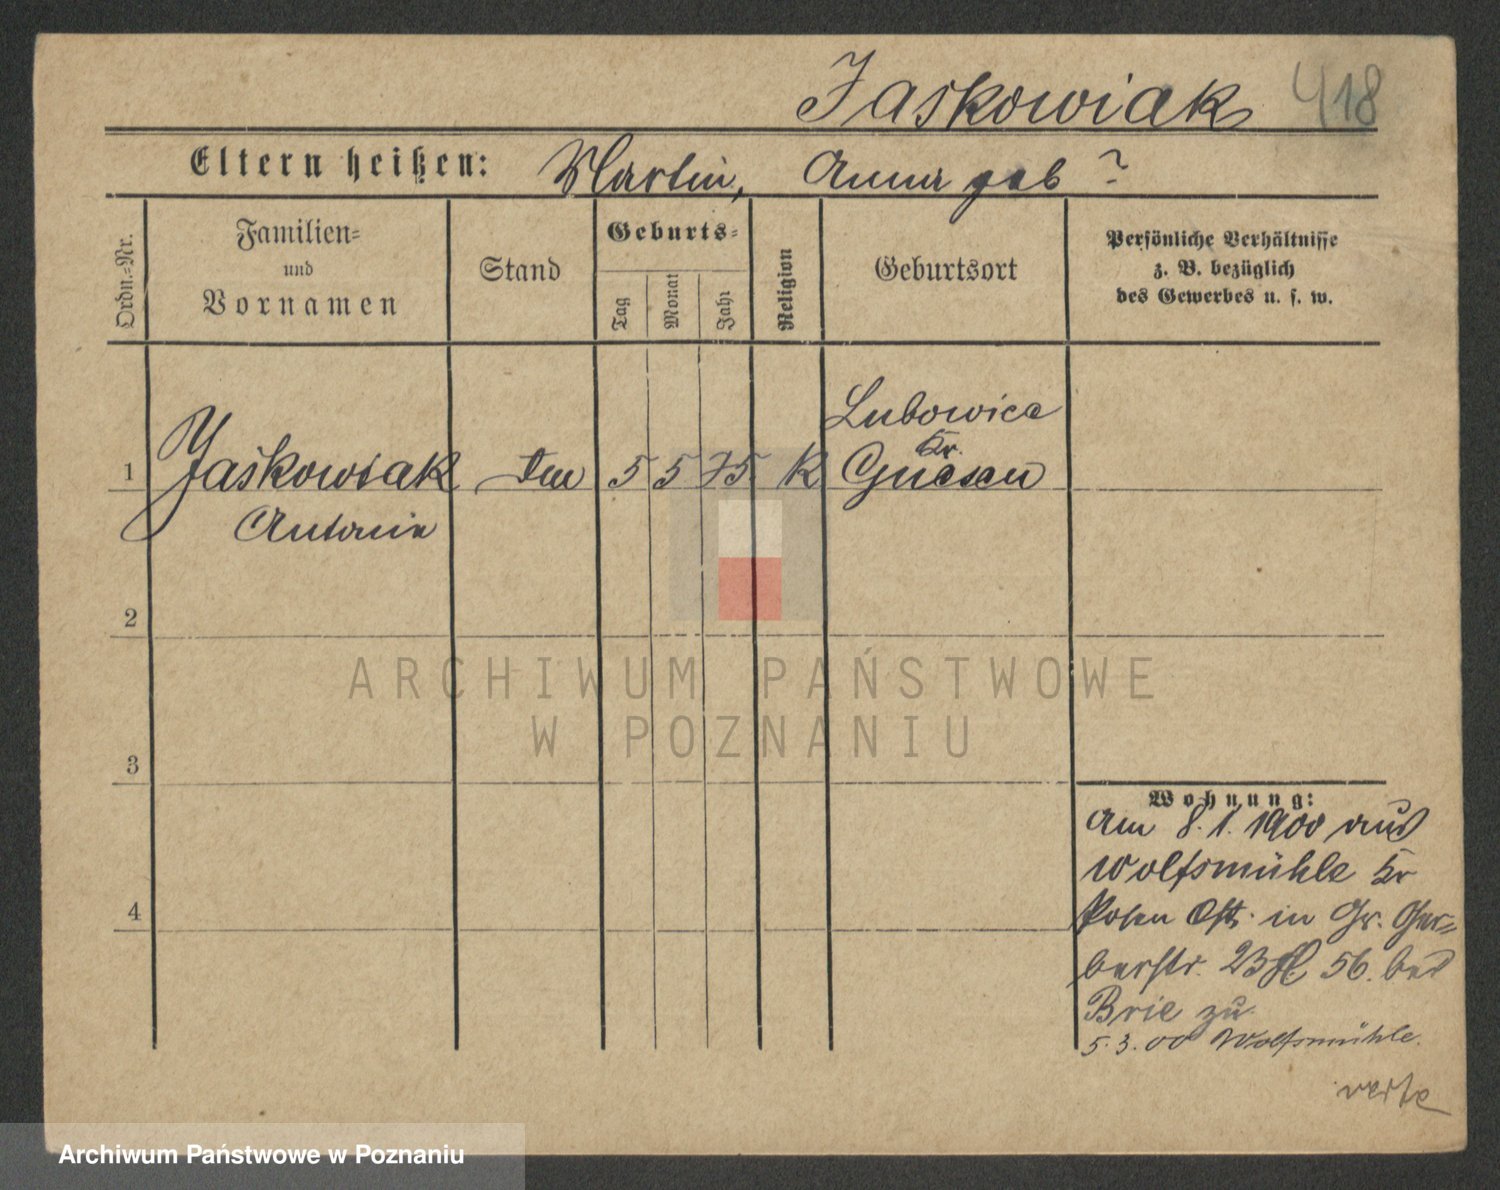 Jaskowiak 418
Eltern heißen: Martin, Anna geb ?
Ordn.-Nr.
Familien-
und
Vornamen
Stand
Geburts-
Tag
Monat
Jahr
Religion
Geburtsort
Persönliche Verhältnisse
z. B. bezüglich
des Gewerbes u. s. w.
Lubowice
Kr.
1 Jaśkowiak 5 5 75 K Gnesen
Antonie
2
3
4
Wohnung:
Am 8. 1. 1900 aus
Wolfsmühle Kr
Posen Ost. in Gr. Ger-
berstr. 23 56. bei
Brie zu
5. 3. 00 Wolfsmühle.
verte
ARCHIWUM PAŃSTWOWE
W POZNANIU
Archiwum Państwowe w Poznaniu